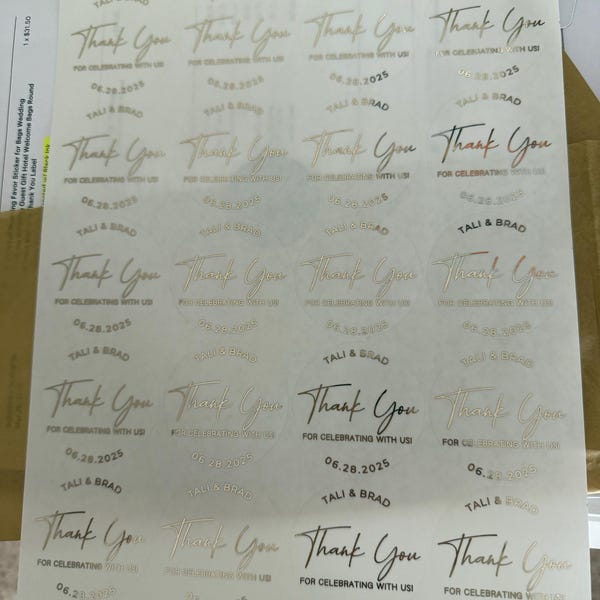 1 x $31.50
Favor Sticker for Bags Wedding
Guest Gift Hotel Welcome Bags Round
You Label
TALI & BRAD
Thank You
FOR CELEBRATING WITH US!
06.28.2025
Thank You
FOR CELEBRATING WITH US!
06.28.2025
Thank You
FOR CELEBRATING WITH US!
06.28.2025
Thank You
FOR CELEBRATING WITH US!
06.28.2025
TALI & BRAD
Thank You
FOR CELEBRATING WITH US!
06.28.2025
TALI & BRAD
Thank You
FOR CELEBRATING WITH US!
06.28.2025
TALI & BRAD
Thank You
FOR CELEBRATING WITH US!
06.28.2025
TALI & BRAD
Thank You
FOR CELEBRATING WITH US!
06.28.2025
TALI & BRAD
Thank You
FOR CELEBRATING WITH US!
06.28.2025
TALI & BRAD
Thank You
FOR CELEBRATING WITH US!
06.28.2025
TALI & BRAD
Thank You
FOR CELEBRATING WITH US!
06.28.2025
TALI & BRAD
Thank You
FOR CELEBRATING WITH US!
06.28.2025
TALI & BRAD
Thank You
FOR CELEBRATING WITH US!
06.28.2025
TALI & BRAD
Thank You
FOR CELEBRATING WITH US!
06.28.2025
TALI & BRAD
Thank You
FOR CELEBRATING WITH US!
06.28.2025
TALI & BRAD
Thank You
FOR CELEBRATING WITH US!
06.28.2025
TALI & BRAD
Thank You
FOR CELEBRATING WITH US!
06.28.2025
TALI & BRAD
Thank You
FOR CELEBRATING WITH US!
TALI & BRAD
Thank You
FOR CELEBRATING WITH US!
TALI & BRAD
Thank You
FOR CELEBRATING WITH US!